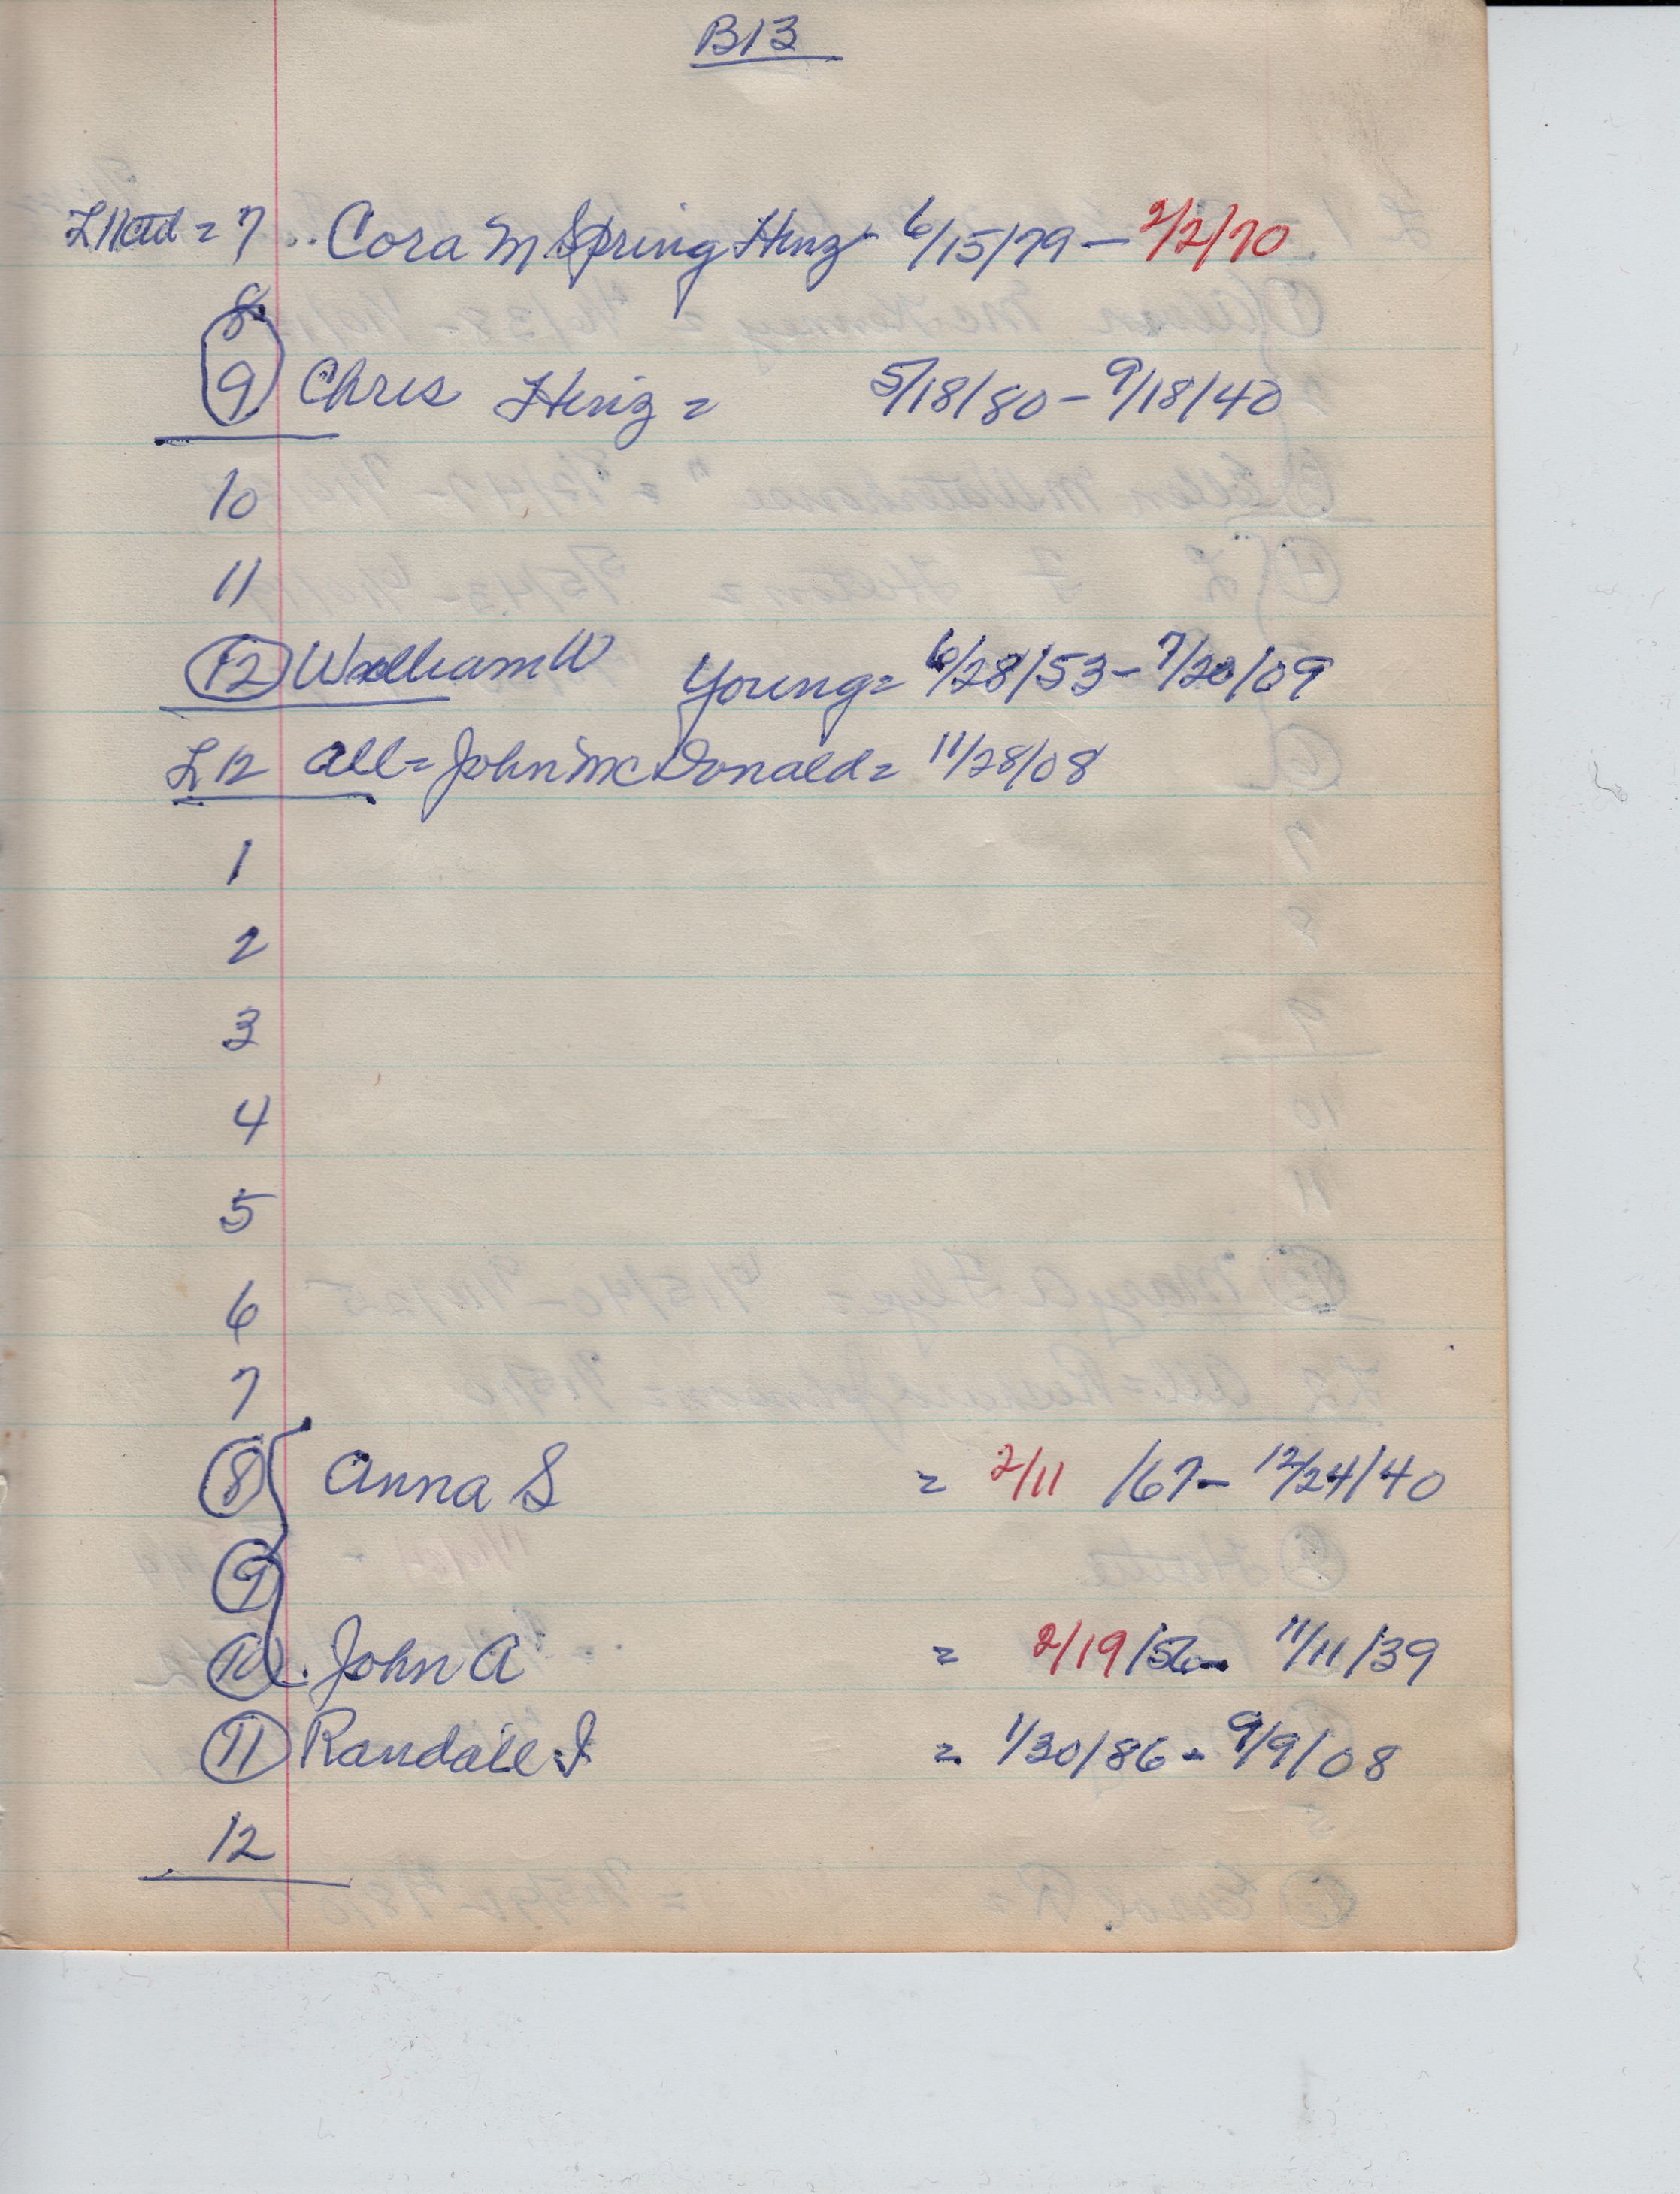 B13
L11ctd = 7 .. Cora M Spring Hinz - 6/15/79 - 2/2/70
8
9 Chris Hinz = 5/18/80 - 9/18/40
10
11
12 William W Young = 6/28/53 - 7/20/09
L12 all = John McDonald = 11/28/08
1
2
3
4
5
6
7
8 Anna S = 2/11 /67 - 12/24/40
9
10 . John A = 2/19/56 - 11/11/39
11 Randall I = 1/30/86 - 9/9/08
12